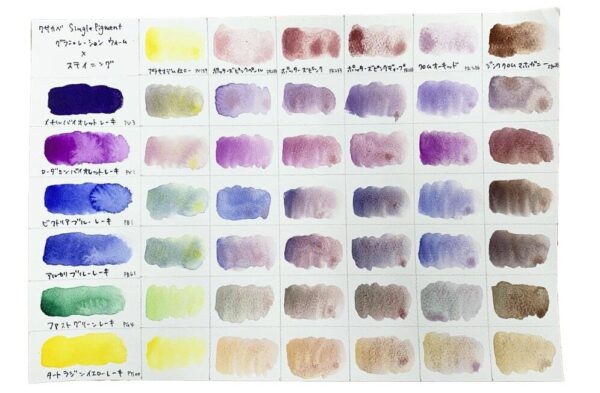 クサカベ Single Pigment
グラニュレーション ウォーム
×
ステイニング
ポッターズピンクペール
ポッターズピンク
ポッターズピンクディープ
クロムオーキッド
ジンククロムマホガニー
メチルバイオレットレーキ PV3
ローダミンバイオレットレーキ PV1
ビクトリアブルーレーキ PB1
アルカリブルーレーキ PB61
ファストグリーンレーキ PG4
タートラジンイエローレーキ PY100